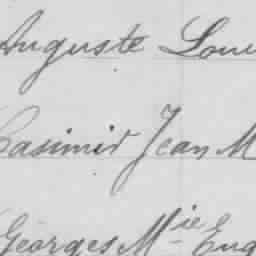 Auguste Loui
Casimir Jean M
Georges Mie Eug